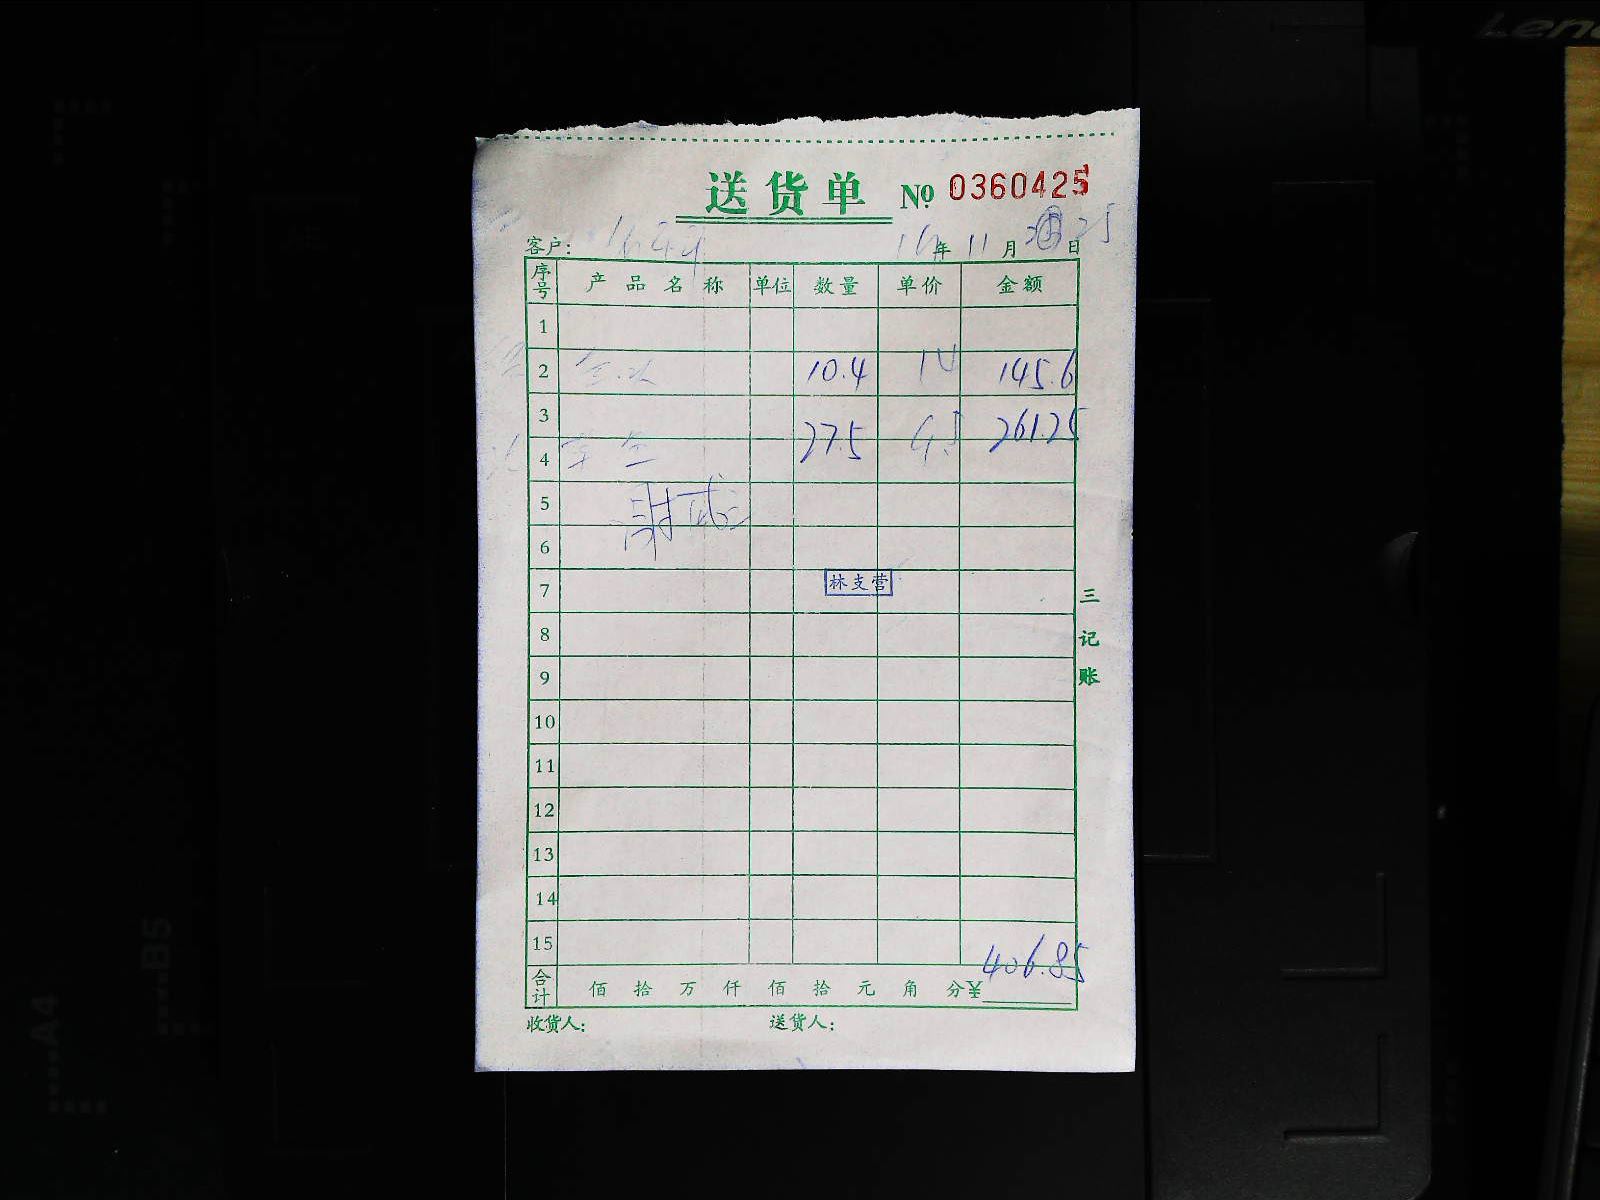 Leno
送货单 № 0360425
客户: 16年11月25日
序号 产品名称 单位 数量 单价 金额
1
2 10.4 14 145.6
3 27.5 9.5 261.25
4 草鱼
5
6
7 林支营
8
9
10
11
12
13
14
15
合计 佰拾万仟佰拾元角分¥ 406.85
收货人: 送货人:
三记账
A4
B5